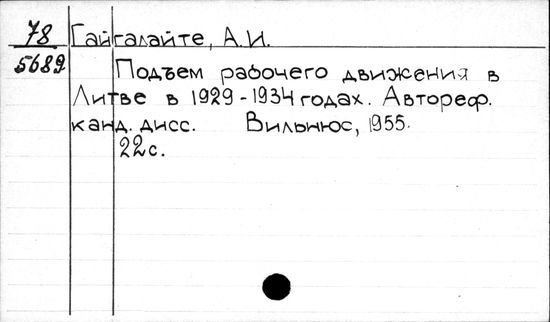 78 Гайгалайте, А.И.
5689 Подъем рабочего движения в
Литве в 1929-1934 годах. Автореф.
канд. дисс. Вильнюс, 1955.
22с.